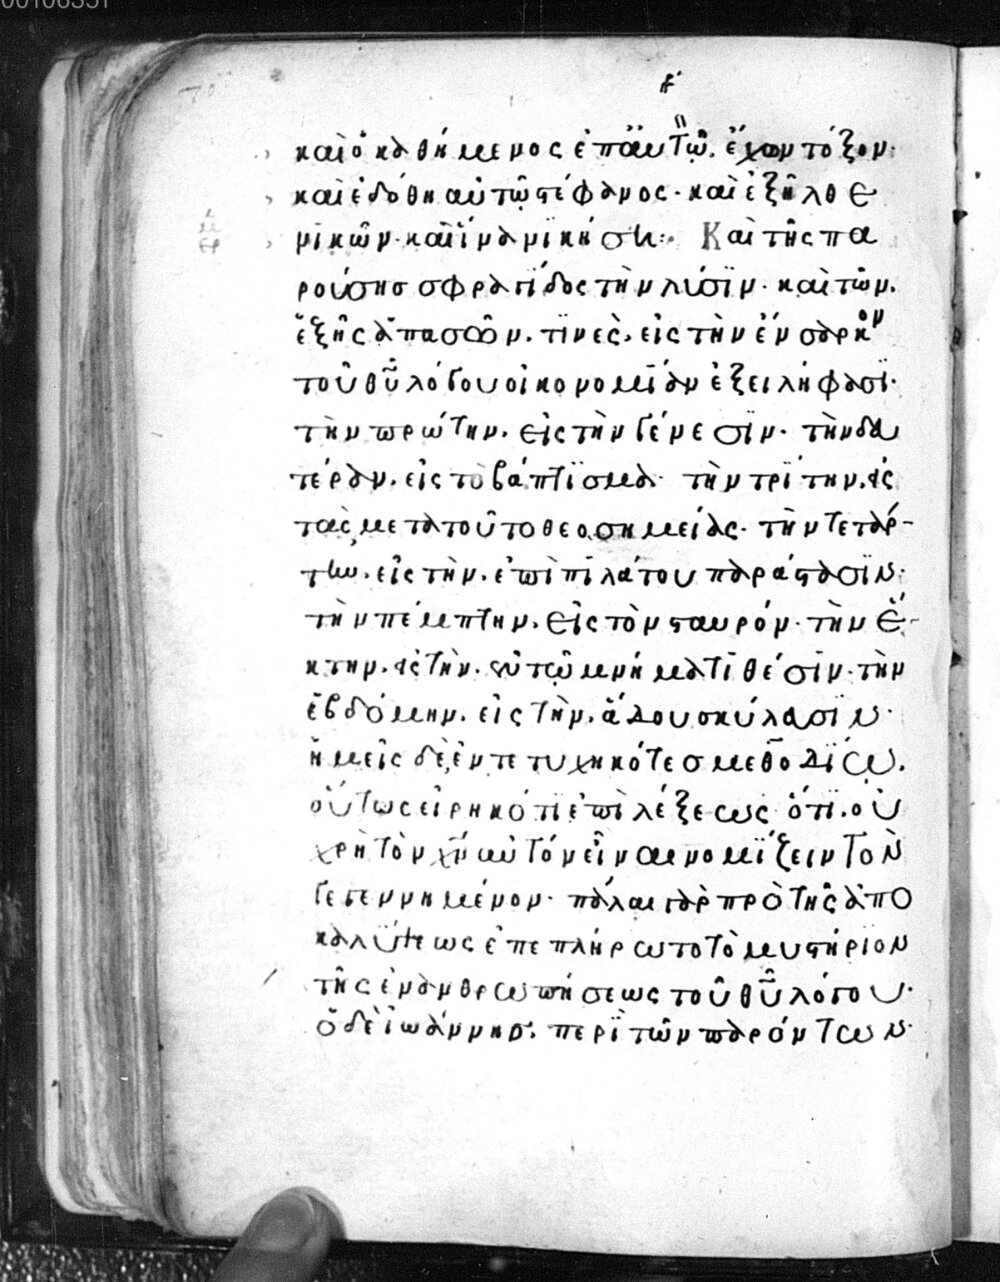 καὶ ὁ καθήμενος ἐπ' αὐτῷ. ἔχων τόξον·
καὶ ἐδόθη αὐτῷ στέφανος· καὶ ἐξῆλθε
νικῶν· καὶ ἵνα νικήση: Καὶ τῆς πα
ρούσης σφραγίδος τὴν λύσϊν· καὶ τῶν.
ἑξῆς ἁπασῶν. τϊνὲς, εἰς τὴν ἔνσαρκον
τοῦ θῡ λόγου οἰκονομίαν ἐξειλήφασϊ·
τὴν πρώτην. εἰς τὴν γένεσϊν· τὴν δευ
τέραν. εἰς τὸ βάπτϊσμα· τὴν τρϊτην. εἰς
τὰς μετὰ τοῦτο θεοσημείας· τὴν τετάρ-
την. εἰς τὴν. ἐπὶ πϊλάτου παράστασϊν·
τὴν πέμπτην. εἰς τὸν σταυρόν· τὴν ἕ-
κτην. εἰς τὴν. ἐν τῷ μνήματϊ θέσϊν· τὴν
ἑβδόμην. εἰς τὴν. ἅδου σκύλασϊν·
ἡμεῖς δὲ, ἐντετυχηκότες μεθοδϊῳ.
οὕτως εἰρηκότϊ ἐπὶ λέξεως ὅτϊ. οὐ
χρὴ τὸν χν̄ αὐτὸν εἶναι νομϊζειν τὸν
γεγεννημένον· πάλαι γὰρ πρὸ τῆς ἀπο
καλύψεως ἐπεπλήρωτο τὸ μυστήρϊον
τῆς ἐνανθρωπήσεως τοῦ θῡ λόγου·
ὁ δὲ ἰωάννης. περϊ τῶν παρόντων·